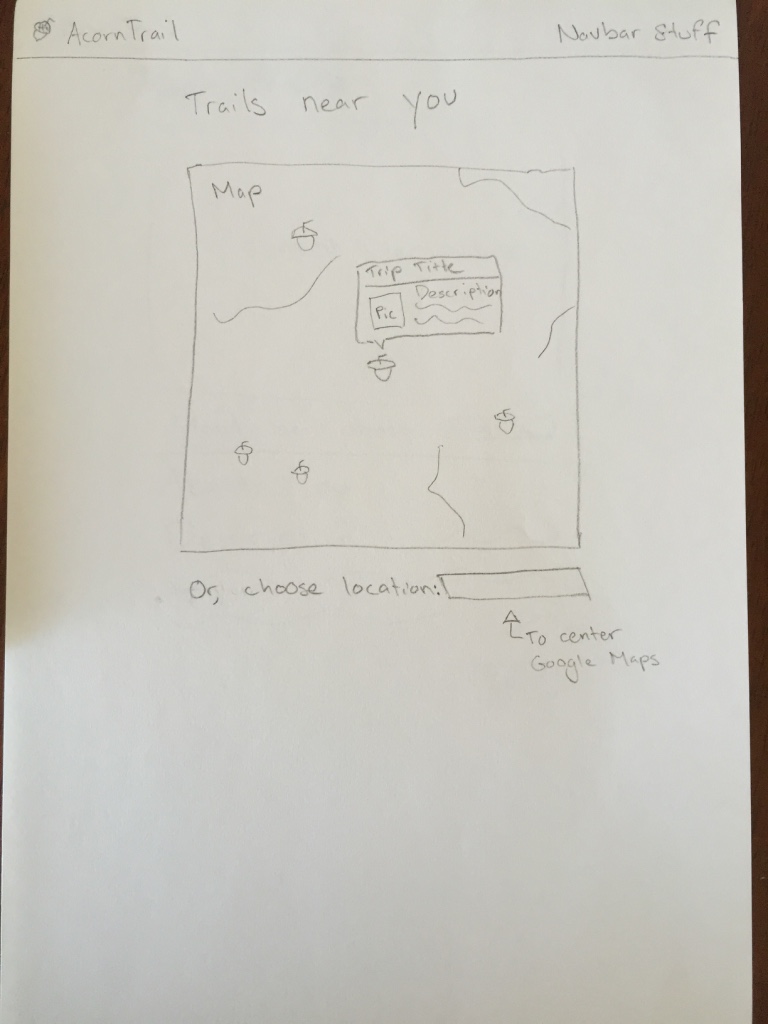 AcornTrail
Navbar Stuff
Trails near you
Map
Trip Title
Description
Pic
Or, choose location:
To center
Google Maps